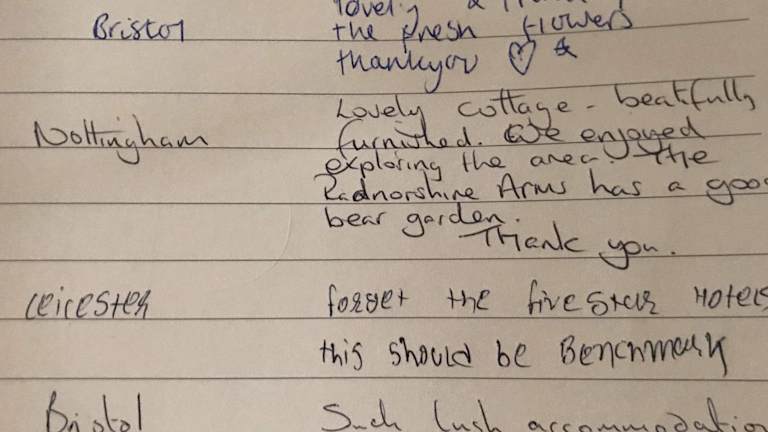 Bristol
the fresh flowers
thankyou
Nottingham
Lovely cottage - beatifully
furnished. We enjoyed
exploring the area. The
Radnorshire Arms has a good
bear garden.
Thank you.
Leicester
forget the five star Hotels
this should be Benchmark
Bristol
Such lush accommodation